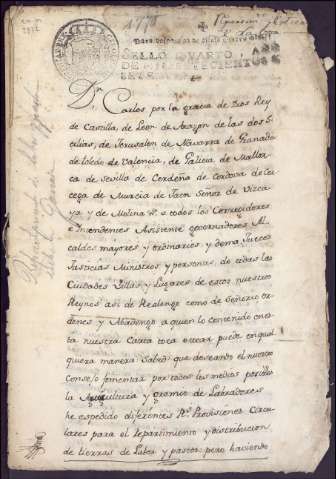 1778
SELLO QUARTO, AÑO
DE MIL SETECIENTOS
Dⁿ Carlos por la gracia de Dios Rey
de Castilla, de Leon de Aragon de las dos Si
cilias, de Jerusalen de Navarra de Granada
de toledo de Valencia, de Galicia de Mallor
ca de Sevilla de Cerdeña de Cordova de Cor
cega de Murcia de Jaen Señor de Vizca
ya y de Molina &c. a todos los Corregidores
e Intendentes Asistente governadores Al
caldes mayores y ordinarios y demas Jueces
Justicias Ministros y personas de todas las
Ciudades Villas y Lugares de estos nuestros
Reynos asi de Realengo como de Señorio or
denes y Abadengo a quien lo contenido en es
ta nuestra Carta toca o tocar puede en qual
quiera manera: Sabed: que deseando el nuestro
Consejo fomentar por todos los medios posibles
la Agricultura y gremio de Labradores
he expedido diferentes Rs. Provisiones Circu
lares para el repartimiento y distribucion
de tierras de Labor y pastos; pero haciendo